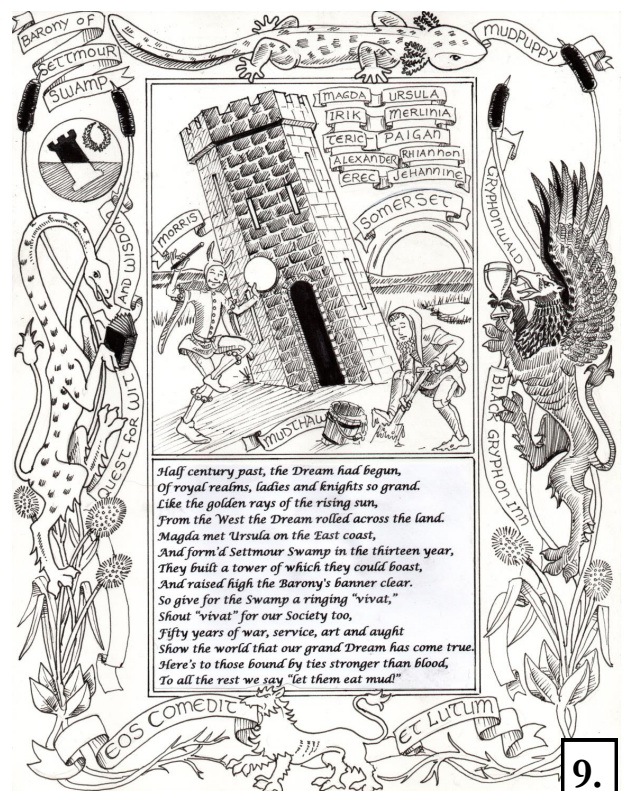 BARONY OF
SETTMOUR
SWAMP
MUDPUPPY
MAGDA URSULA
IRIK MERLINIA
TERIC PAIGAN
ALEXANDER RHIANNON
EREC JEHANNINE
SOMERSET
MORRIS
MUDTHAW
QUEST FOR WIT
AND WISDOM
GRYPHONWALD
BLACK GRYPHON INN
Half century past, the Dream had begun,
Of royal realms, ladies and knights so grand.
Like the golden rays of the rising sun,
From the West the Dream rolled across the land.
Magda met Ursula on the East coast,
And form'd Settmour Swamp in the thirteen year,
They built a tower of which they could boast,
And raised high the Barony's banner clear.
So give for the Swamp a ringing "vivat,"
Shout "vivat" for our Society too,
Fifty years of war, service, art and aught
Show the world that our grand Dream has come true.
Here's to those bound by ties stronger than blood,
To all the rest we say "let them eat mud!"
EOS COMEDIT
ET LUTUM
9.